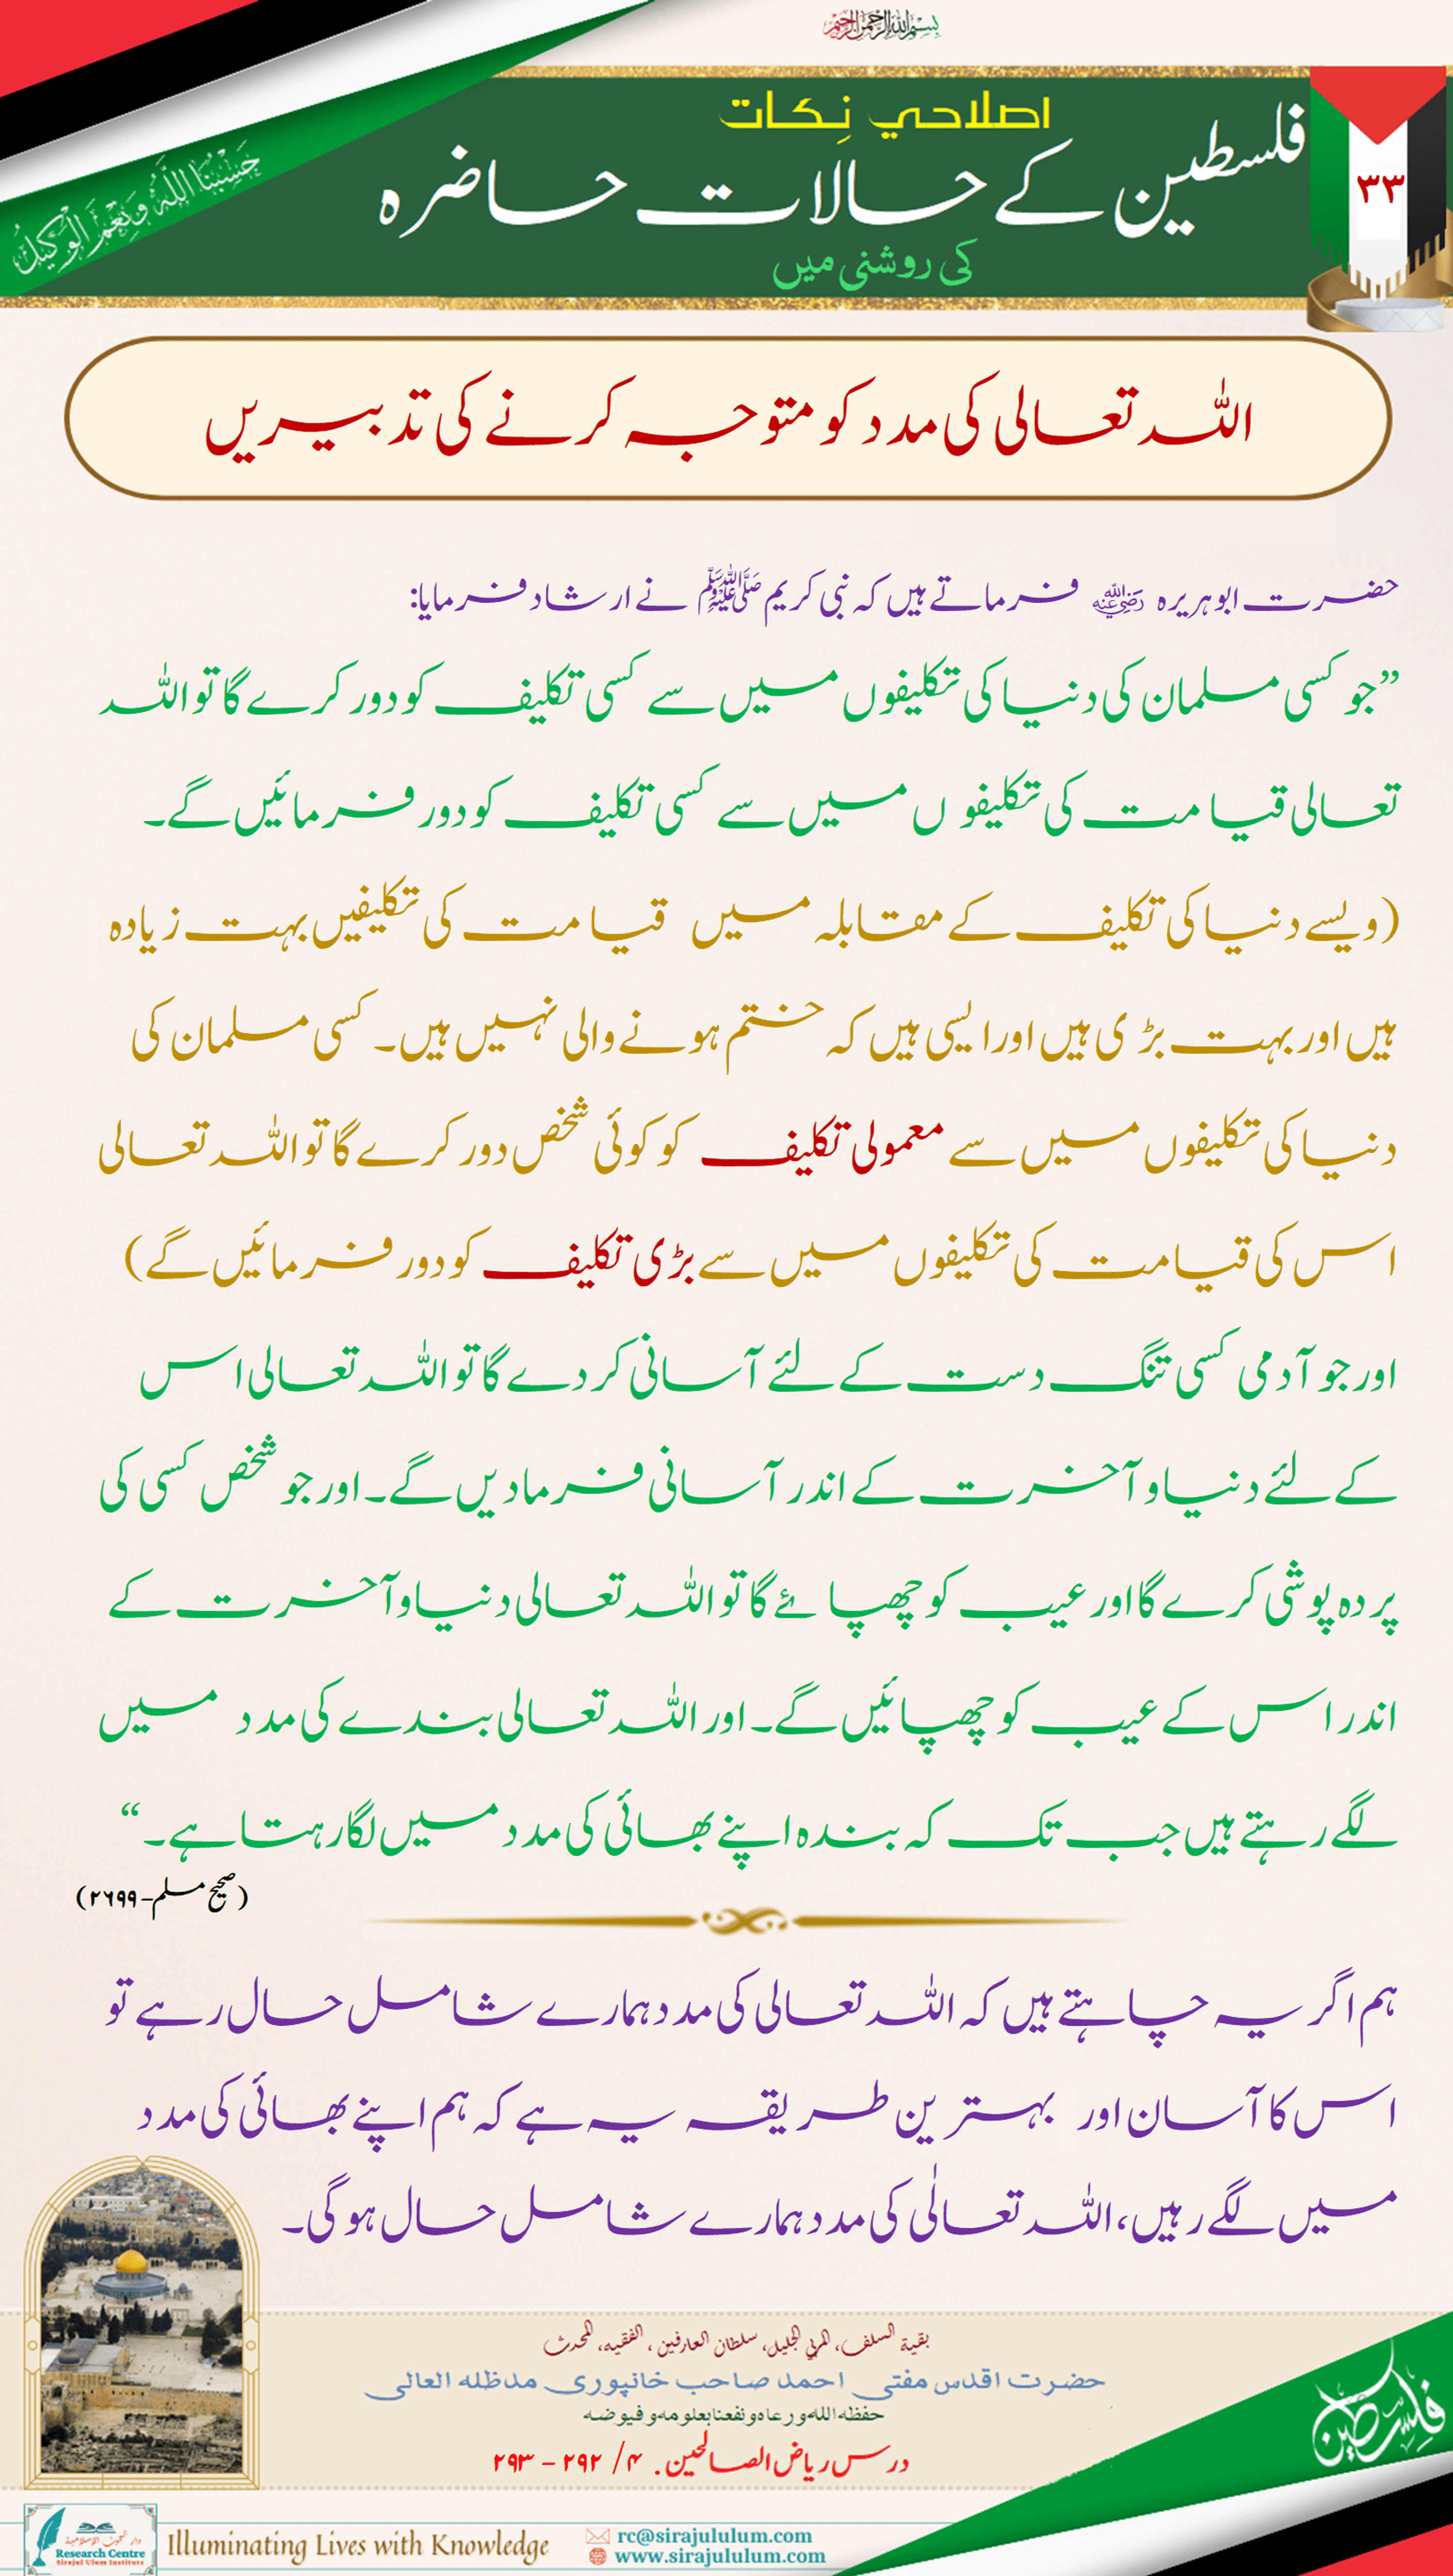 بسم اللہ الرحمن الرحیم
حَسْبُنَا اللَّهُ وَنِعْمَ الْوَكِيلُ
اصلاحي نِکات
فلسطین کے حالات حاضرہ
کی روشنی میں
۳۳
اللہ تعالی کی مدد کو متوجہ کرنے کی تدبیریں
حضرت ابو ہریرہ رضی اللہ عنہ فرماتے ہیں کہ نبی کریم ﷺ نے ارشاد فرمایا:
”جو کسی مسلمان کی دنیا کی تکلیفوں میں سے کسی تکلیف کو دور کرے گا تو اللہ
تعالی قیامت کی تکلیفوں میں سے کسی تکلیف کو دور فرمائیں گے۔
(ویسے دنیا کی تکلیف کے مقابلہ میں قیامت کی تکلیفیں بہت زیادہ
ہیں اور بہت بڑی ہیں اور ایسی ہیں کہ ختم ہونے والی نہیں ہیں۔ کسی مسلمان کی
دنیا کی تکلیفوں میں سے معمولی تکلیف کو کوئی شخص دور کرے گا تو اللہ تعالی
اس کی قیامت کی تکلیفوں میں سے بڑی تکلیف کو دور فرمائیں گے)
اور جو آدمی کسی تنگ دست کے لئے آسانی کر دے گا تو اللہ تعالی اس
کے لئے دنیا و آخرت کے اندر آسانی فرما دیں گے۔ اور جو شخص کسی کی
پردہ پوشی کرے گا اور عیب کو چھپائے گا تو اللہ تعالی دنیا و آخرت کے
اندر اس کے عیب کو چھپائیں گے۔ اور اللہ تعالی بندے کی مدد میں
لگے رہتے ہیں جب تک کہ بندہ اپنے بھائی کی مدد میں لگا رہتا ہے۔“
(صحیح مسلم-۲۶۹۹)
ہم اگر یہ چاہتے ہیں کہ اللہ تعالی کی مدد ہمارے شامل حال رہے تو
اس کا آسان اور بہترین طریقہ یہ ہے کہ ہم اپنے بھائی کی مدد
میں لگے رہیں، اللہ تعالٰی کی مدد ہمارے شامل حال ہوگی۔
بقیة السلف، المربي الجلیل، سلطان العارفین، الفقیه، المحدث
حضرت اقدس مفتی احمد صاحب خانپوری مدظله العالی
حفظه الله ورعاه ونفعنا بعلومه وفیوضه
درس ریاض الصالحین. ۴/ ۲۹۲ – ۲۹۳
فلسطين
دار البحوث الإسلامية
Research Centre
Sirajul Ulum Institute
Illuminating Lives with Knowledge
rc@sirajululum.com
www.sirajululum.com